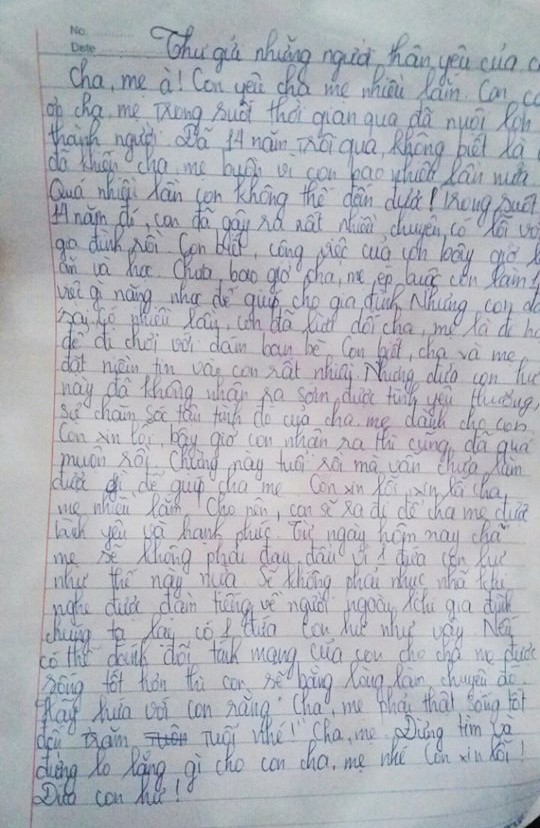 No.
Date
Thư gửi những người thân yêu của c
Cha, mẹ à! Con yêu cha mẹ nhiều lắm. Con cả
ơn cha, mẹ trong suốt thời gian qua đã nuôi lớn
thành người. Đã 14 năm trôi qua, không biết là
đã khiến cha, mẹ buồn vì con bao nhiêu lần nữa.
Quá nhiều lần con không thể đếm được! Trong suốt
14 năm đó, con đã gây ra rất nhiều chuyện, có lỗi với
gia đình rồi. Con biết, công việc của con bây giờ là
ăn và học. Chưa bao giờ cha, mẹ ép buộc con làm
việc gì nặng nhọc để giúp cho gia đình. Nhưng con đã
sai. Có nhiều lần, con đã lừa dối cha, mẹ là đi họ
để đi chơi với đám bạn bè. Con biết, cha và mẹ
đặt niềm tin vào con rất nhiều. Nhưng đứa con hư
này đã không nhận ra sớm được tình yêu thương,
sự chăm sóc tận tình đó của cha mẹ dành cho con.
Con xin lỗi, bây giờ con nhận ra thì cũng đã quá
muộn rồi. Chừng này tuổi rồi mà vẫn chưa làm
được gì để giúp cha mẹ. Con xin lỗi, xin lỗi cha,
mẹ nhiều lắm. Cho nên, con sẽ ra đi để cha mẹ được
bình yên và hạnh phúc. Từ ngày hôm nay cha
mẹ sẽ không phải đau đầu vì 1 đứa con hư
như thế này nữa. Sẽ không phải nhục nhã khi
nghe được đàm tiếng về người ngoài, khi gia đình
chúng ta lại có 1 đứa con hư như vậy. Nếu
có thể đánh đổi tính mạng của con cho cha mẹ được
sống tốt hơn thì con sẽ bằng lòng làm chuyện đó.
Hãy hứa với con rằng "Cha, mẹ phải thật sống tốt
đến trăm tuổi nhé!" Cha, mẹ. Đừng tìm và
đừng lo lắng gì cho con cha, mẹ nhé. Con xin lỗi!
Đứa con hư!